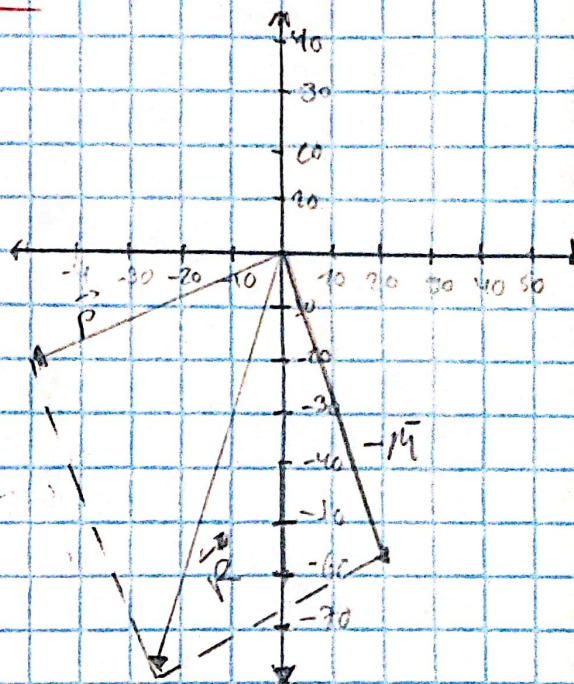 40
30
20
10
-30 -20 -10 10 20 30 40 50
P
-20
-30
-40
-M
-50
R
-60
-70